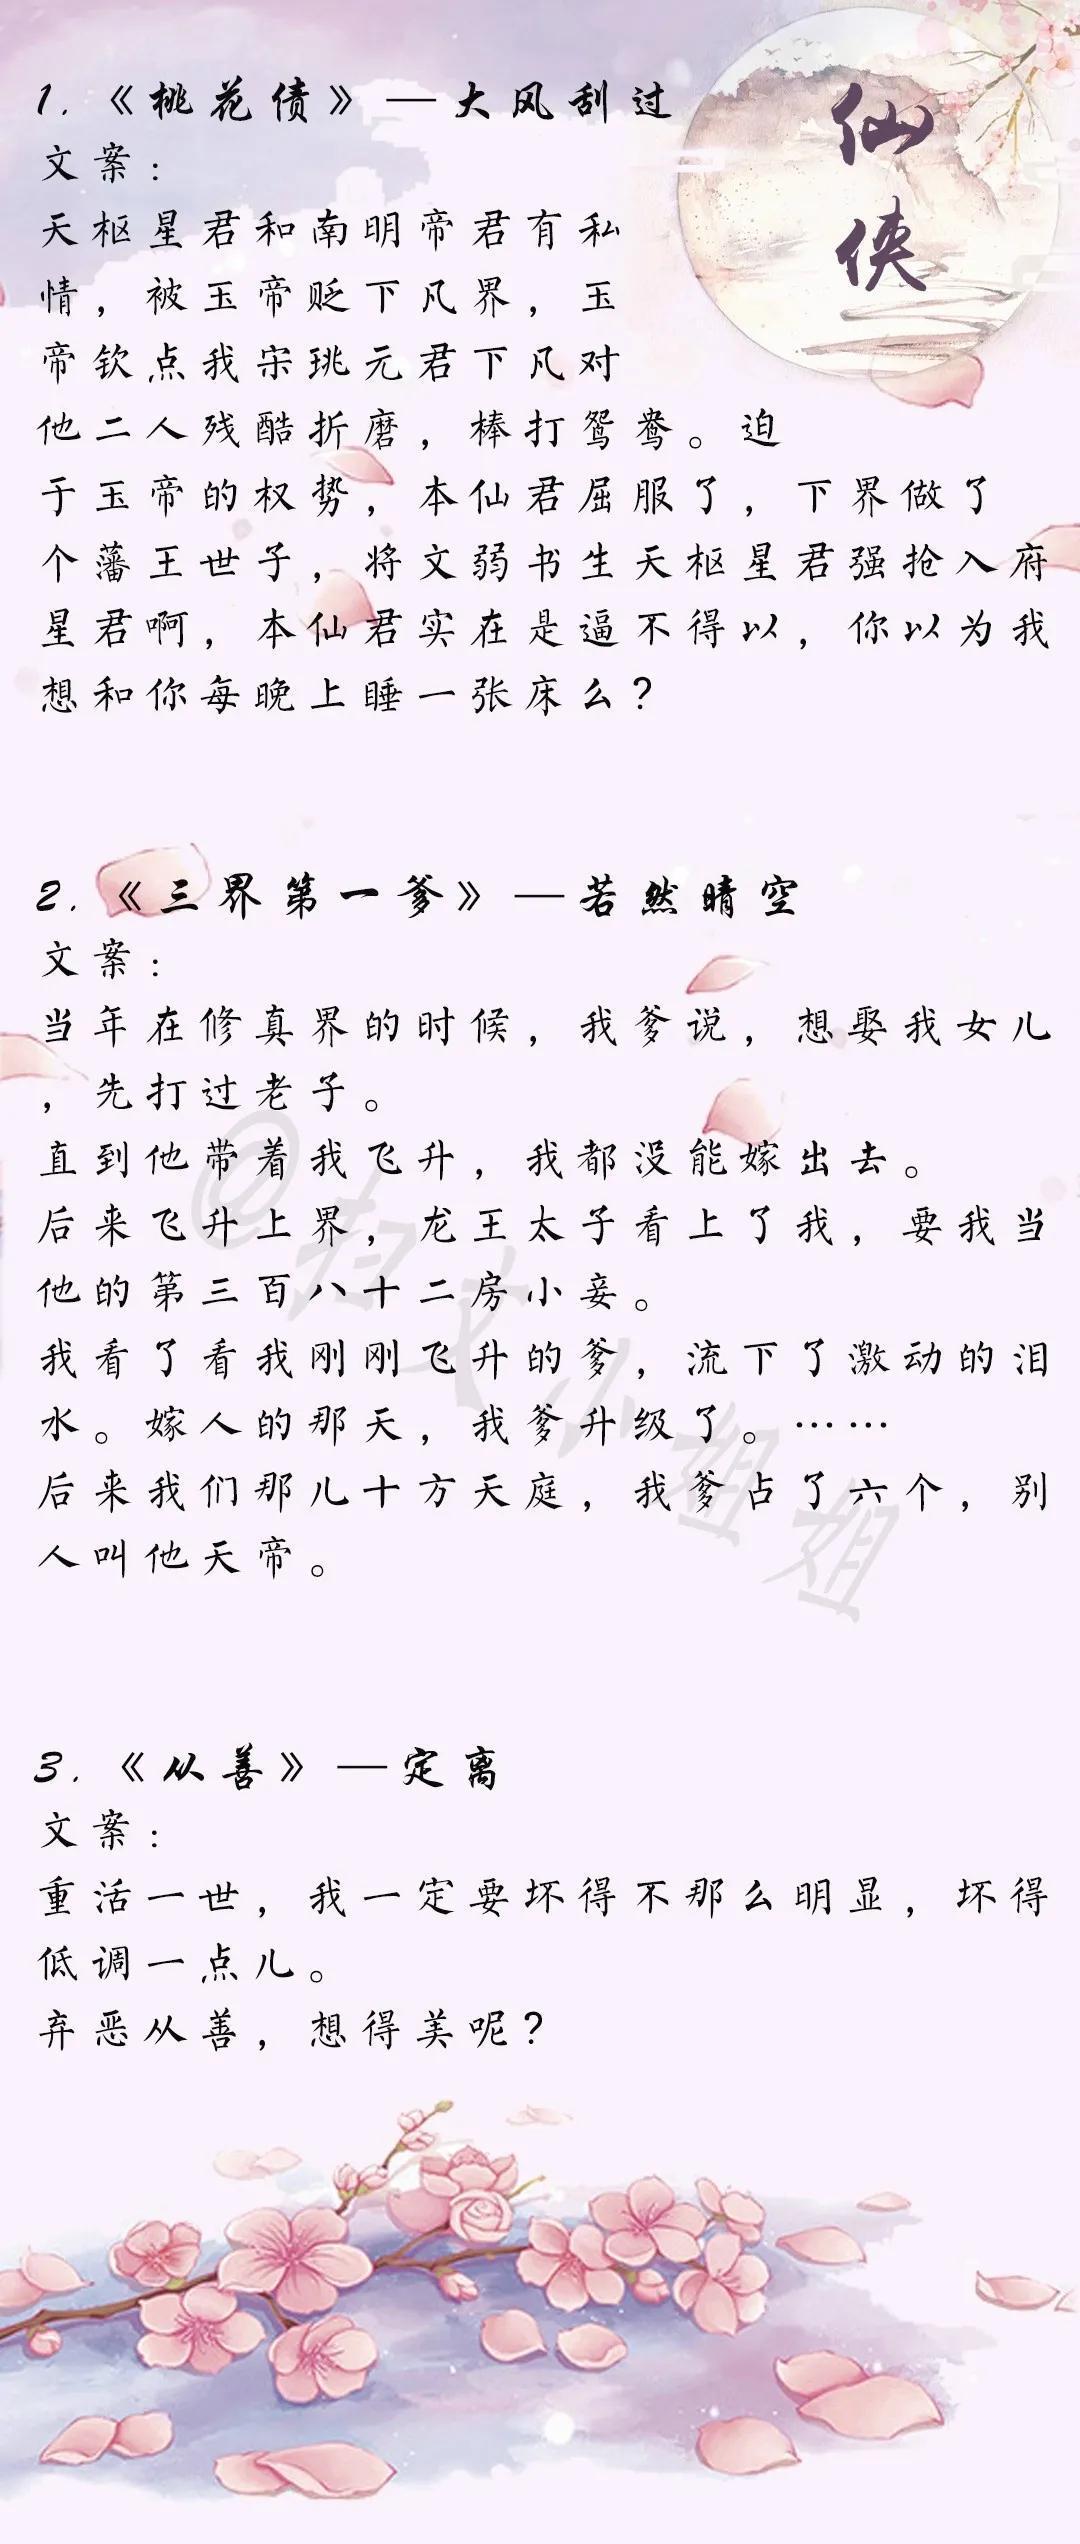 仙侠
1.《桃花债》—大风刮过
文案：
天枢星君和南明帝君有私
情，被玉帝贬下凡界，玉
帝钦点我宋珧元君下凡对
他二人残酷折磨，棒打鸳鸯。迫
于玉帝的权势，本仙君屈服了，下界做了
个藩王世子，将文弱书生天枢星君强抢入府
星君啊，本仙君实在是逼不得以，你以为我
想和你每晚上睡一张床么？
2.《三界第一爹》—若然晴空
文案：
当年在修真界的时候，我爹说，想娶我女儿
，先打过老子。
直到他带着我飞升，我都没能嫁出去。
后来飞升上界，龙王太子看上了我，要我当
他的第三百八十二房小妾。
我看了看我刚刚飞升的爹，流下了激动的泪
水。嫁人的那天，我爹升级了。……
后来我们那儿十方天庭，我爹占了六个，别
人叫他天帝。
3.《从善》—定离
文案：
重活一世，我一定要坏得不那么明显，坏得
低调一点儿。
弃恶从善，想得美呢？